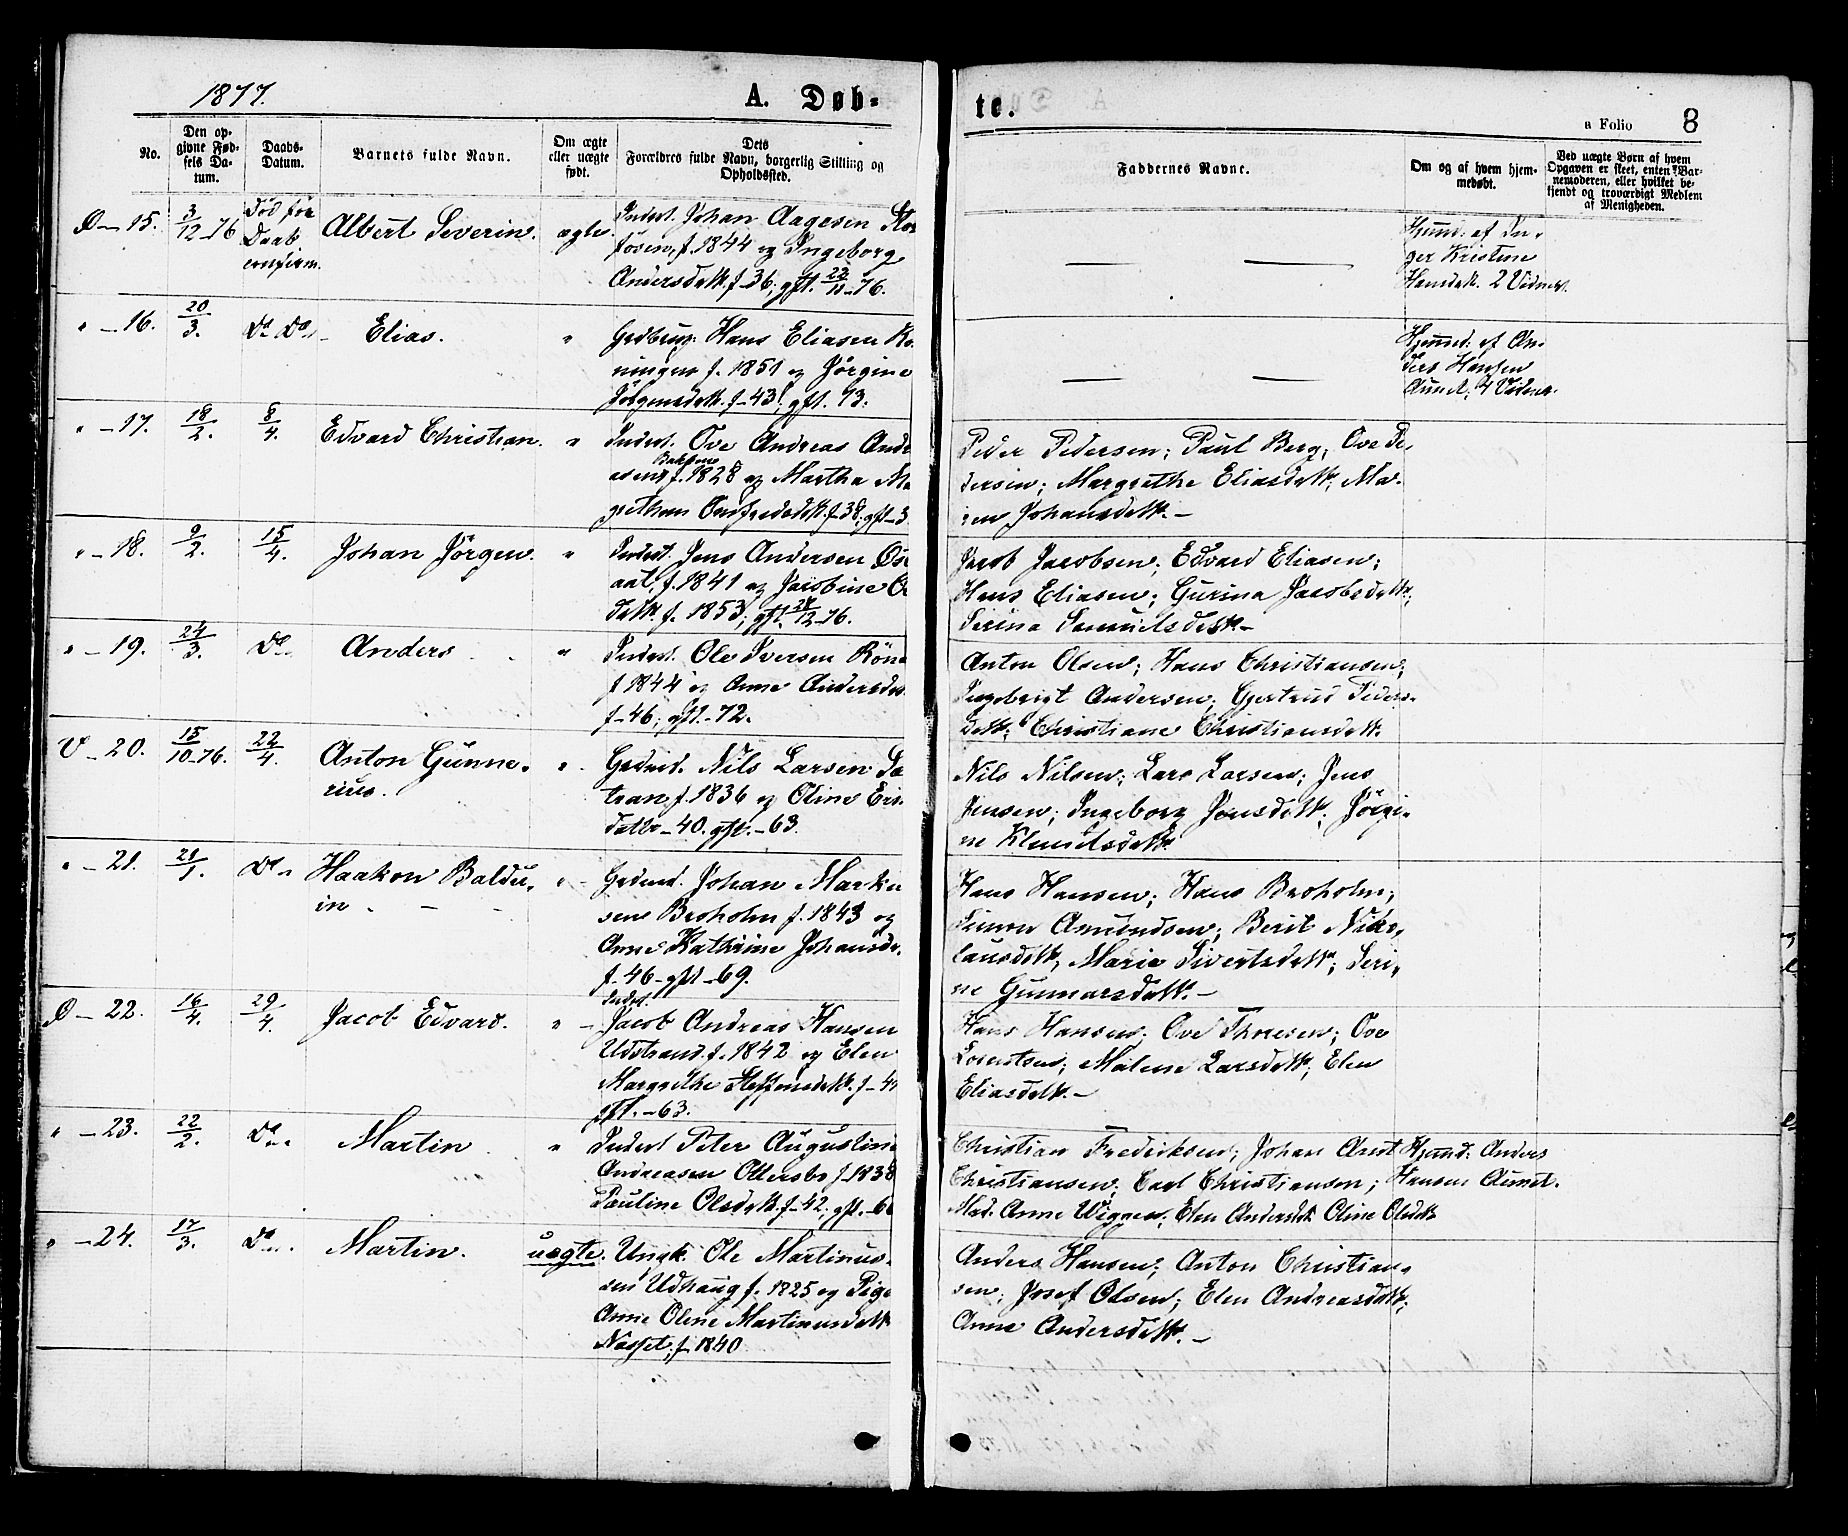 1877.
A. Døb-
te.
a Folio
8
No.
Den op-
givne Fød-
sels Da-
tum.
Daabs-
Datum.
Barnets fulde Navn.
Om ægte
eller uægte
født.
Dets
Forældres fulde Navn, borgerlig Stilling og
Opholdssted.
Faddernes Navne.
Om og af hvem hjem-
medøbt.
Ved uægte Børn af hvem
Opgaven er skeet, enten Bar-
nemoderen, eller hvilket be-
kjendt og troværdigt Medlem
af Menigheden.
15.
3/12-76
Død før
Daab.
Albert Severin.
ægte.
Inderst. Johan Aagesen
f. 1844 og Ingeborg
Andersdatt. f-36; gft. 22/11-76.
Hjemd. af In-
ger Kristine
Hansdatt. 2 Vidner.
" - 16.
20/3.
Do Do
Elias.
"
Hans Eliasen
f. 1851 og Jørgine
f-43; gft. 73.
Hjemmed. af An-
ders Hansen
" - 17.
18/2.
8/4.
Edvard Christian.
"
Inderst. Ove Andreas
f. 1828 og Martha
f-38; gft-
Peder Pedersen; Paul Berg; Ove Pe-
dersen; Margrethe Eliasdatt.; Ma-
ren Johansdatt. -
" - 18.
9/2.
15/4.
Johan Jörgen.
"
Inderst. Jens Andersen
f. 1841 og Jacobine
datt. f. 1853; gft. 12-76.
Jacob Jacobsen; Edvard Eliasen;
Hans Eliasen; Gurina Jacobsdatt.;
Serina Samuelsdatt. -
" - 19.
24/3.
Do
Anders
"
Inderst. Ole Iversen
f 1844 og Anne
f-46; gft.-72.
Anton Olsen; Hans Christiansen;
Ingebrigt Andersen; Gjertrud Peders-
datt.; Christiane Christiansdatt.
V - 20.
15/10-76.
22/4.
Anton Gunne-
rius.
"
Nils Larsen
f. 1836 og Oline
datt. - 40. gft. - 63.
Nils Nilsen; Lars Larsen; Jens
Jensen; Ingeborg Jensdatt.; Jørgi-
ne
" - 21.
21/1.
Do
Haakon Baldu-
in
"
Johan
sen Broholm f. 1843 og
Anne Kathrine
f-46-gft-69.
Hans Hansen; Hans Broholm;
Simon Amundsen; Berit Niko-
lausdatt.; Marie Sivertsdatt.; Seri-
ne Gunnarsdatt. -
22.
16/4.
29/4.
Jacob Edvard.
"
Inderst.
Jacob Andreas Hansen
Udstrand. f. 1842 og Elen
Margrethe
gft.-63.
Hans Hansen; Ove Thoresen; Ove
Lorentsen; Malene Larsdatt.; Elen
Eliasdatt. -
" - 23.
22/2.
Do
Martin
"
Inderst Peter
Andreasen Ottersbo f-1838
Pauline Olsdatt. f-42; gft.
Christian Frederiksen; Johan Arnt
Christiansen; Carl Christiansen;
Anne Wiggen; Elen Andersdatt. Oline Olsdatt.
Hjemd. Anders
Hansen
" - 24.
17/3.
Do
Martin.
uægte.
Ungk. Ole Martinus-
sen Udhaug f. 1825 og Pige
Anne Oline Martinusdatt.
f 1840
Anders Hansen; Anton Christian-
sen; Josef Olsen; Elen Andreasdatt.;
Anne Andersdatt. -